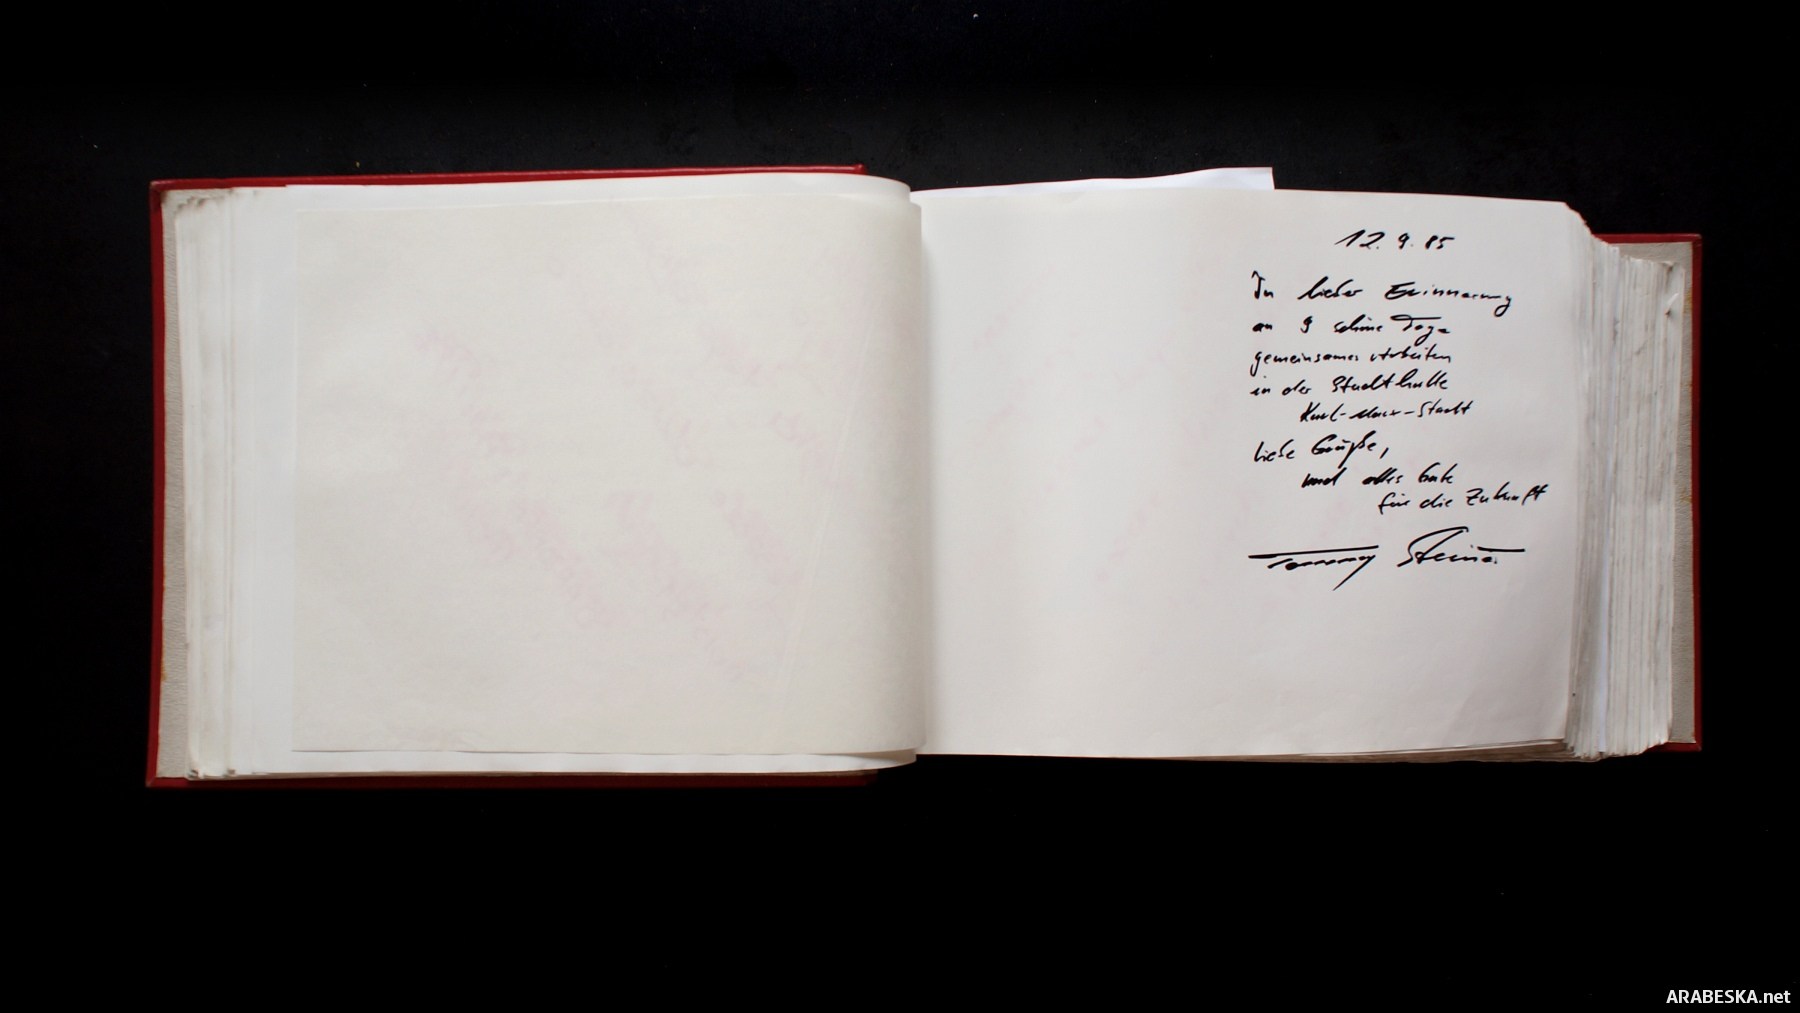 12.9.85
In lieber Erinnerung
an 9 schöne Tage
gemeinsames Arbeiten
in der Stadthalle
Karl-Marx-Stadt
liebe Grüße,
und alles Gute
für die Zukunft
Tommy Steiner
ARABESKA.net